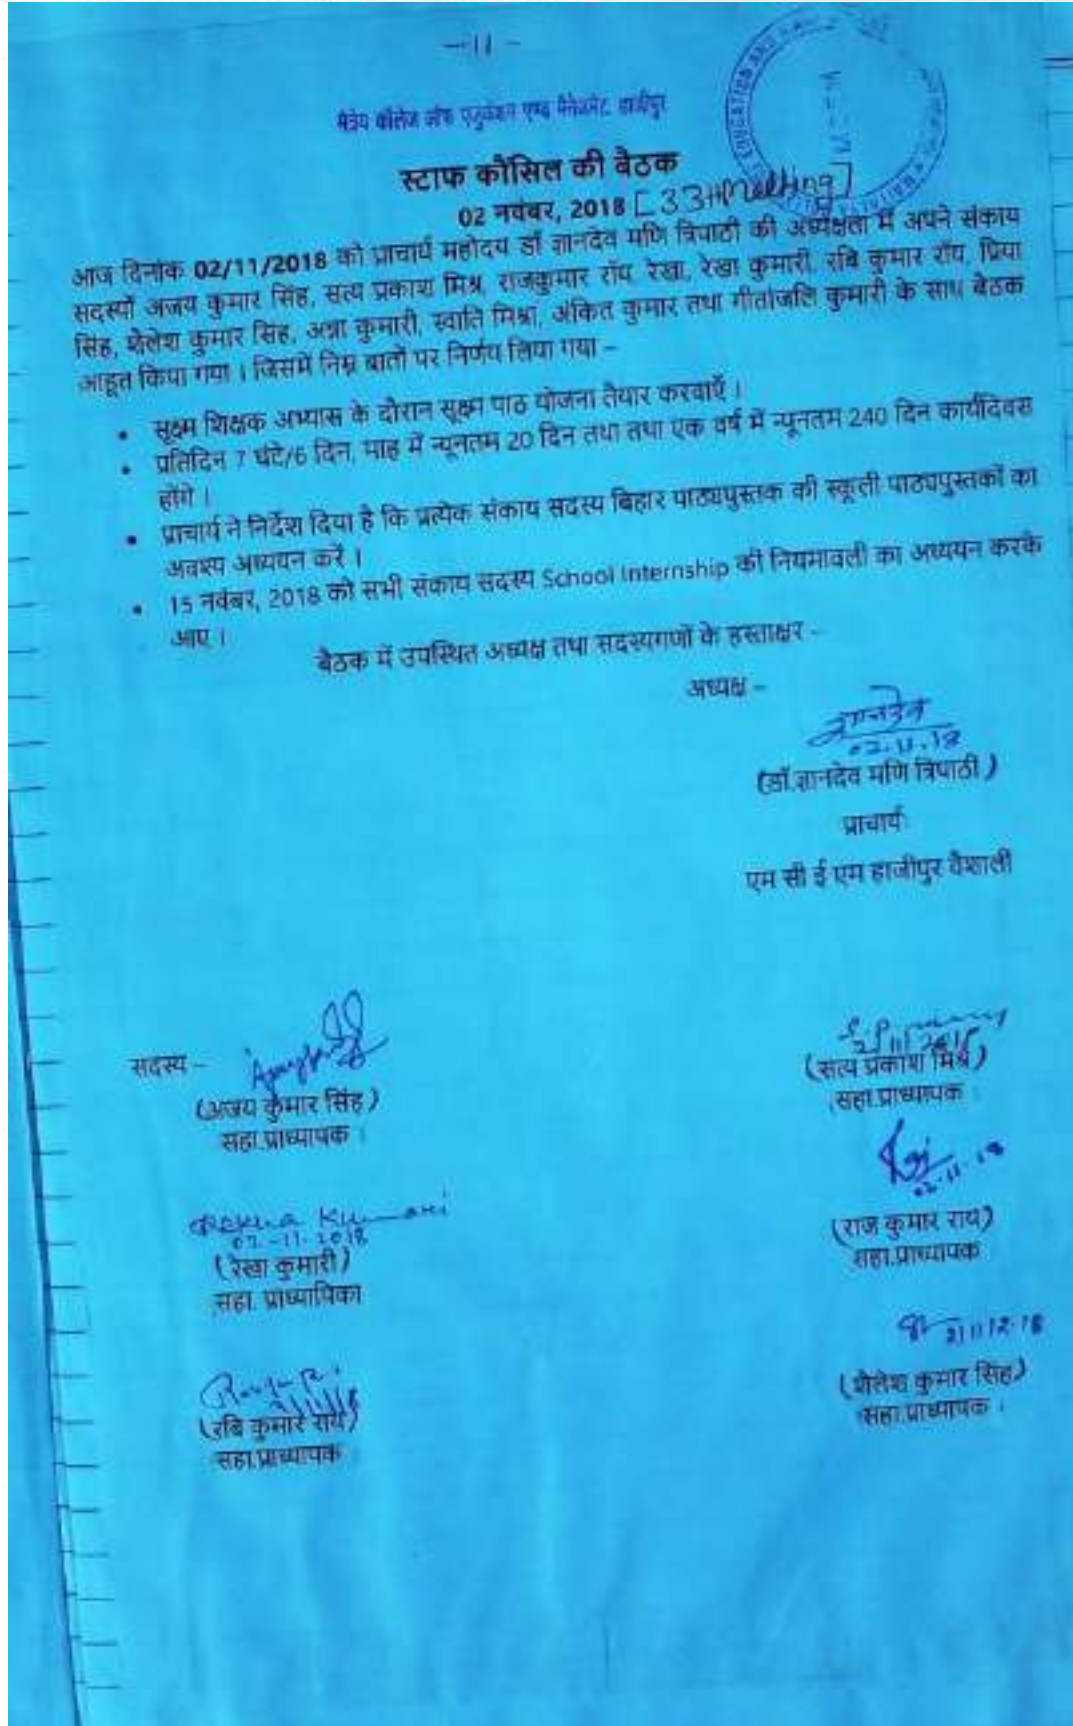 -11-
मैत्रेय कॉलेज ऑफ एजुकेशन एण्ड मैनेजमेंट, हाजीपुर
EDUCATION AND
स्टाफ कौंसिल की बैठक
02 नवंबर, 2018 [33th Meeting]
आज दिनांक 02/11/2018 को प्राचार्य महोदय डॉ ज्ञानदेव मणि त्रिपाठी की अध्यक्षता में अपने संकाय
सदस्यों अजय कुमार सिंह, सत्य प्रकाश मिश्र, राजकुमार रॉय, रेखा, रेखा कुमारी, रबि कुमार रॉय, प्रिया
सिंह, शैलेश कुमार सिंह, अन्ना कुमारी, स्वाति मिश्रा, अंकित कुमार तथा गीतांजलि कुमारी के साथ बैठक
आहूत किया गया । जिसमें निम्न बातों पर निर्णय लिया गया –
• सूक्ष्म शिक्षक अभ्यास के दौरान सूक्ष्म पाठ योजना तैयार करवाएँ ।
• प्रतिदिन 7 घंटे/6 दिन, माह में न्यूनतम 20 दिन तथा तथा एक वर्ष में न्यूनतम 240 दिन कार्यदिवस
होंगे ।
• प्राचार्य ने निर्देश दिया है कि प्रत्येक संकाय सदस्य बिहार पाठ्यपुस्तक की स्कूली पाठ्यपुस्तकों का
अवश्य अध्ययन करें ।
• 15 नवंबर, 2018 को सभी संकाय सदस्य School Internship की नियमावली का अध्ययन करके
आए ।
बैठक में उपस्थित अध्यक्ष तथा सदस्यगणों के हस्ताक्षर –
अध्यक्ष –
ज्ञानदेव
02.11.18
(डॉ.ज्ञानदेव मणि त्रिपाठी )
प्राचार्य
एम सी ई एम हाजीपुर वैशाली
सदस्य –
(अजय कुमार सिंह )
सहा.प्राध्यापक
2/11/2018
(सत्य प्रकाश मिश्र )
सहा.प्राध्यापक
Rekha Kumari
02-11-2018
(रेखा कुमारी )
सहा. प्राध्यापिका
Raj
02.11.18
(राज कुमार राय)
सहा.प्राध्यापक
(रबि कुमार राय)
सहा.प्राध्यापक
(शैलेश कुमार सिंह)
सहा.प्राध्यापक